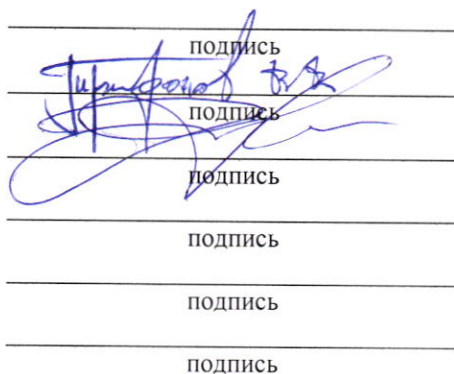 подпись
подпись
подпись
подпись
подпись
подпись